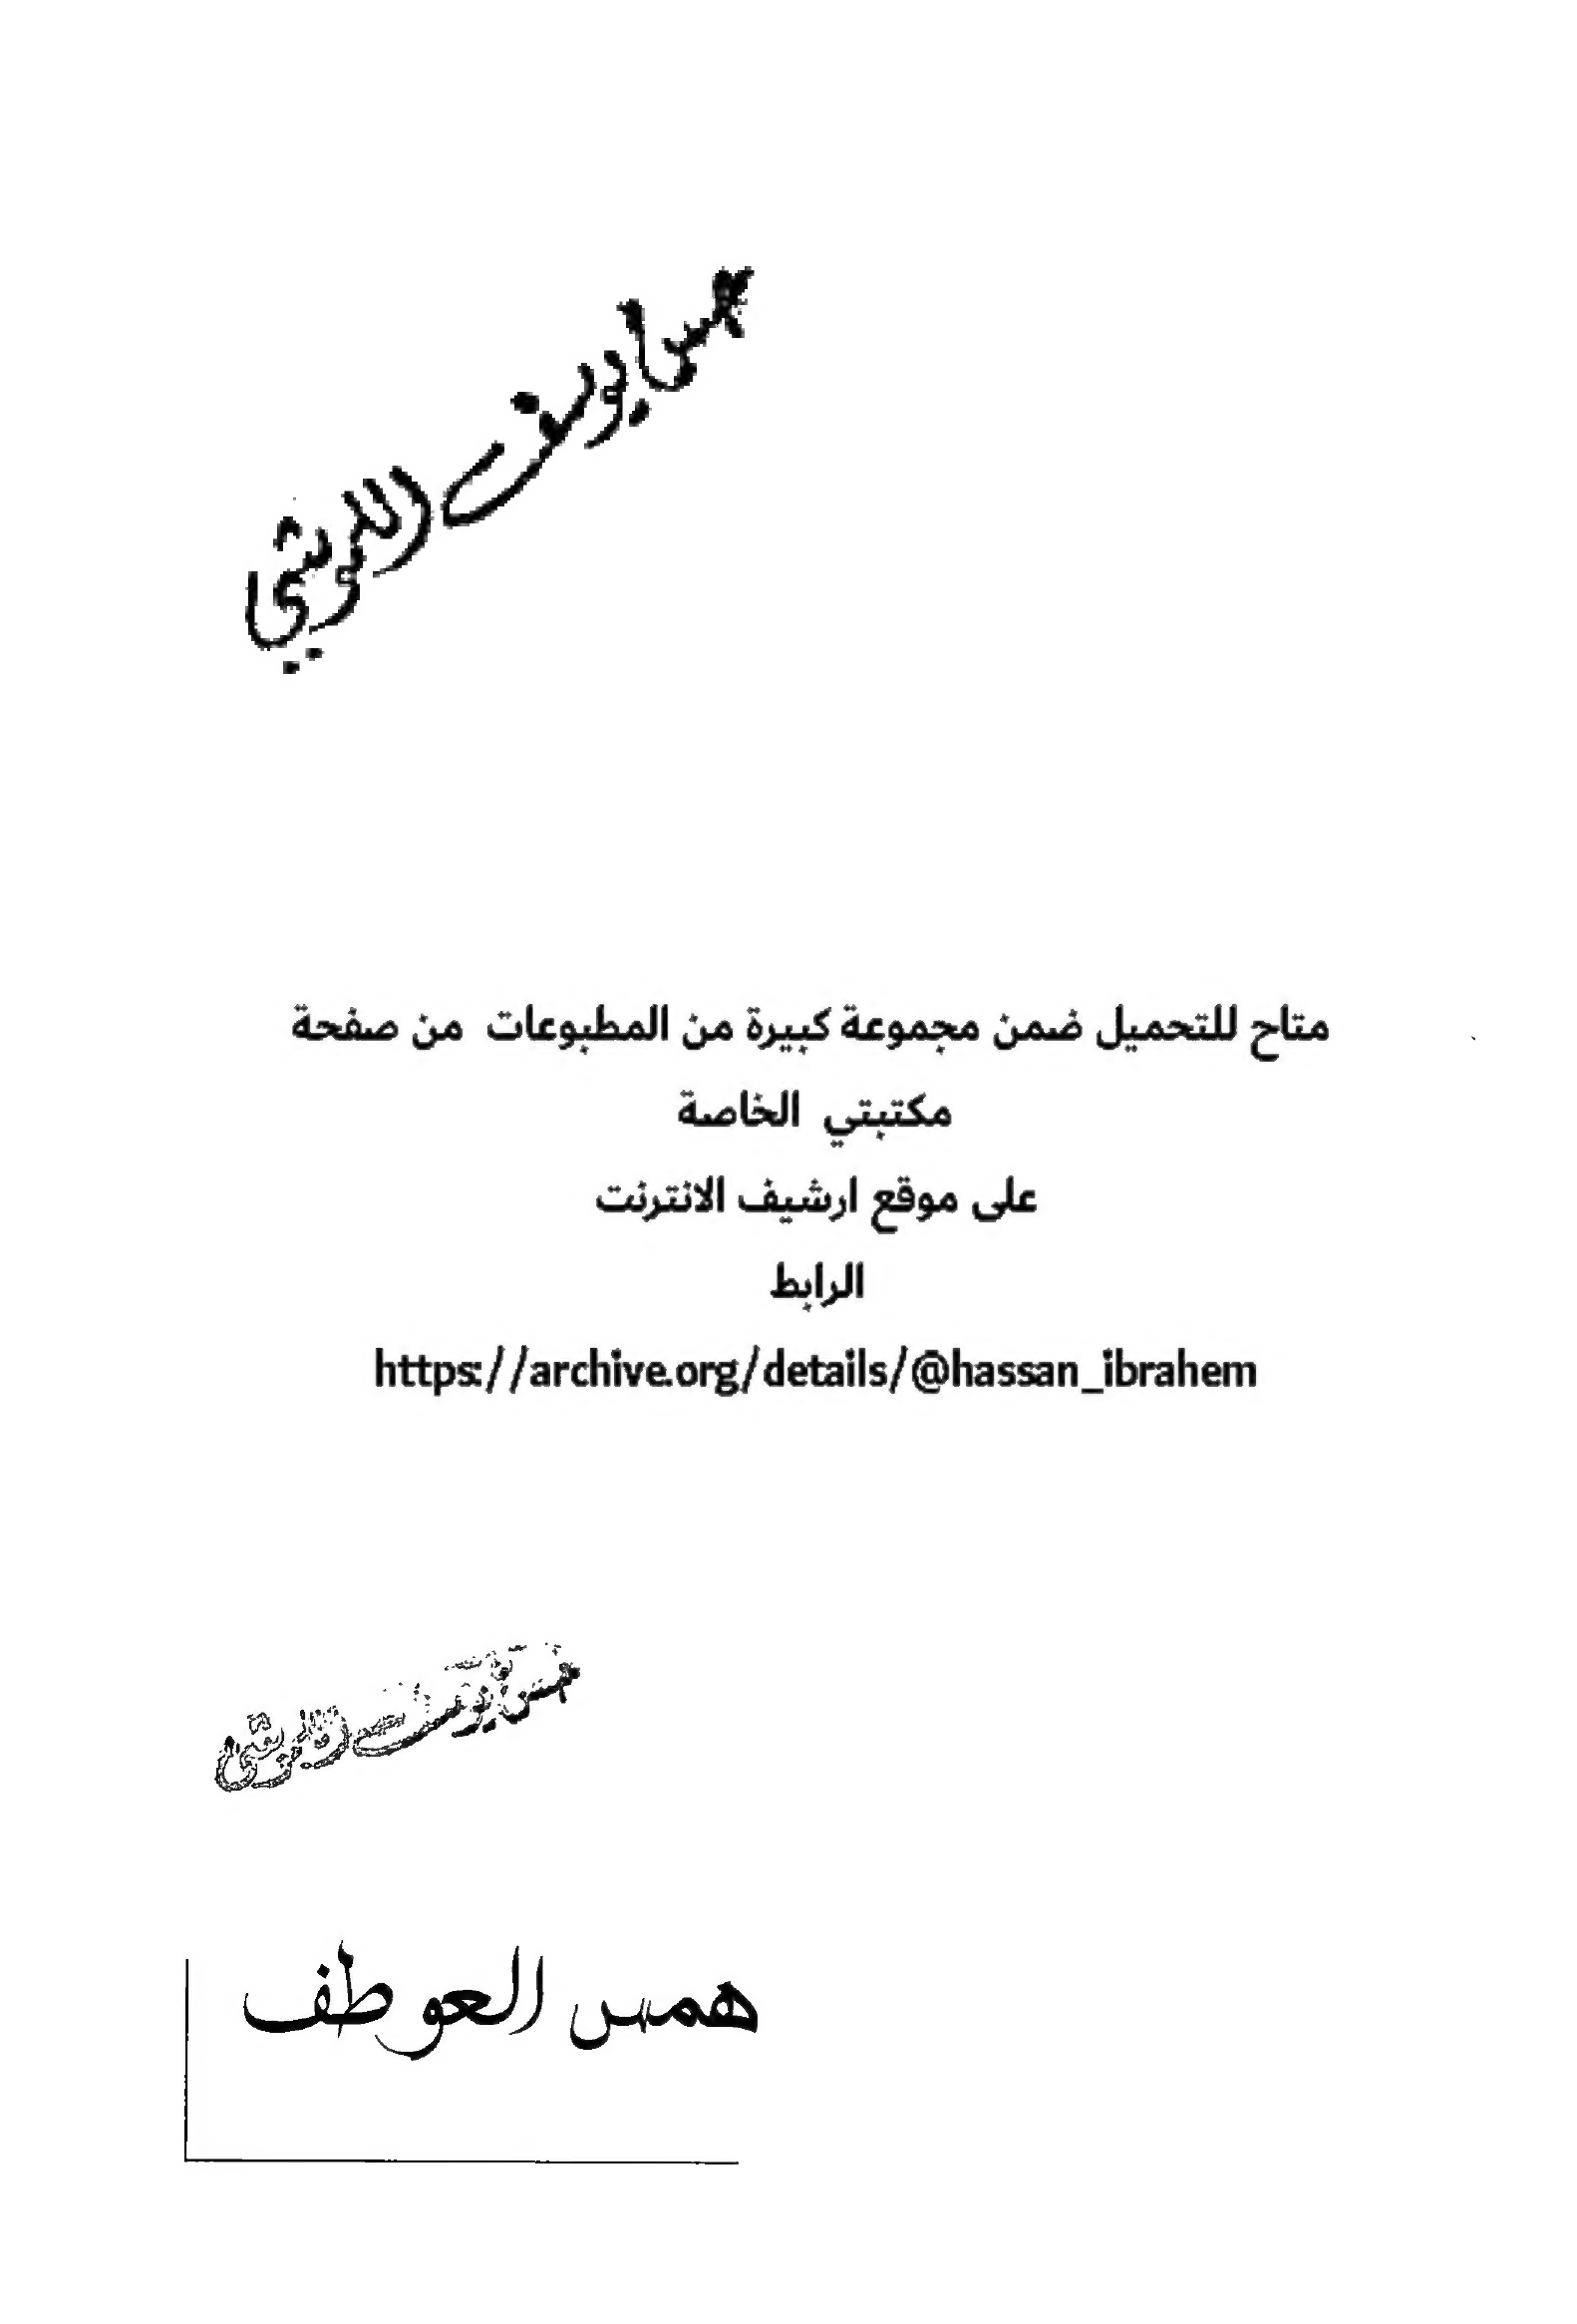 يوسف
متاح للتحميل ضمن مجموعة كبيرة من المطبوعات من صفحة
مكتبتي الخاصة
على موقع ارشيف الانترنت
الرابط
https://archive.org/details/@hassan_ibrahem
همس العوطف